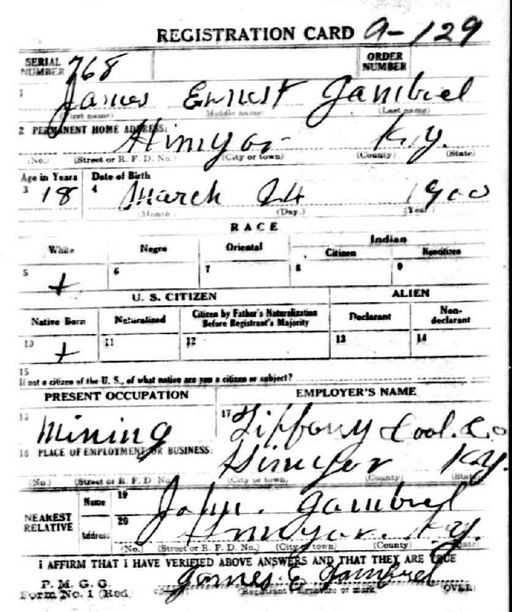 REGISTRATION CARD A-129
SERIAL NUMBER 768 ORDER NUMBER
1 James Ernest Gambrel
(First name) (Middle name) (Last name)
2 PERMANENT HOME ADDRESS: Himyar Ky.
(No.) (Street or R. F. D. No.) (City or town) (County) (State)
Age in Years Date of Birth
3 18 4 March 24 1900
(Month) (Day) (Year)
RACE
White Negro Oriental Indian
Citizen Noncitizen
5 6 7 8 9
U. S. CITIZEN ALIEN
Native Born Naturalized Citizen by Father's Naturalization Before Registrant's Majority Declarant Non-declarant
10 11 12 13 14
15
If not a citizen of the U. S., of what nation are you a citizen or subject?
PRESENT OCCUPATION EMPLOYER'S NAME
16 Mining 17 Tiffany Coal Co
18 PLACE OF EMPLOYMENT OR BUSINESS: Himyar Ky.
(No.) (Street or R. F. D. No.) (City or town) (County) (State)
NEAREST RELATIVE Name 19 John Gambrel
Address 20 Himyar Ky.
(No.) (Street or R. F. D. No.) (City or town) (County) (State)
I AFFIRM THAT I HAVE VERIFIED ABOVE ANSWERS AND THAT THEY ARE TRUE
P. M. G. O.
Form No. 1 (Red) James E Gambrel (OVER)
(Registrant's signature or mark)